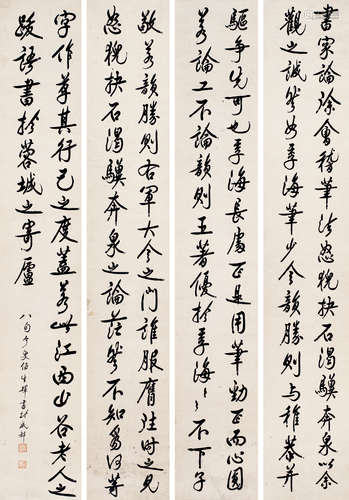 書家論徐會稽筆法怒猊抉石渴驥奔泉以余
觀之誠然如季海筆少令韻勝則與稚恭并
驅爭先可也季海長處正是用筆勁正而心圓
若論工不論韻則王著優於季海々不下子
敬若韻勝則右軍大令之門誰服膺往時之見
怒猊抉石渴驥奔泉之論茫然不知為何等
字作草其行己之度蓋若此江西山谷老人之
跋語書於蓉城之寄廬